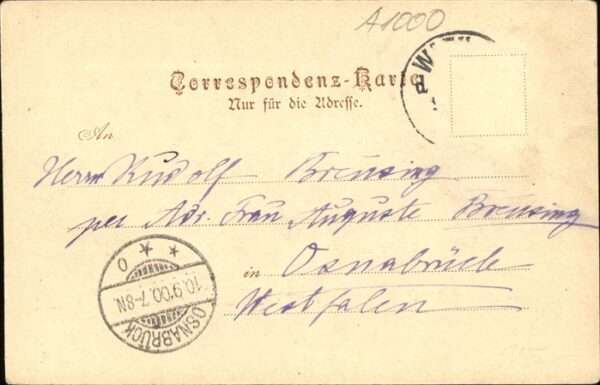 A1000
P W
Correspondenz-Karte
Nur für die Adresse.
An
Herrn Rudolf Breusing
per Adr. Frau Auguste Breusing
in Osnabrück
Westfalen
10.9.00.7-8N.
OSNABRÜCK